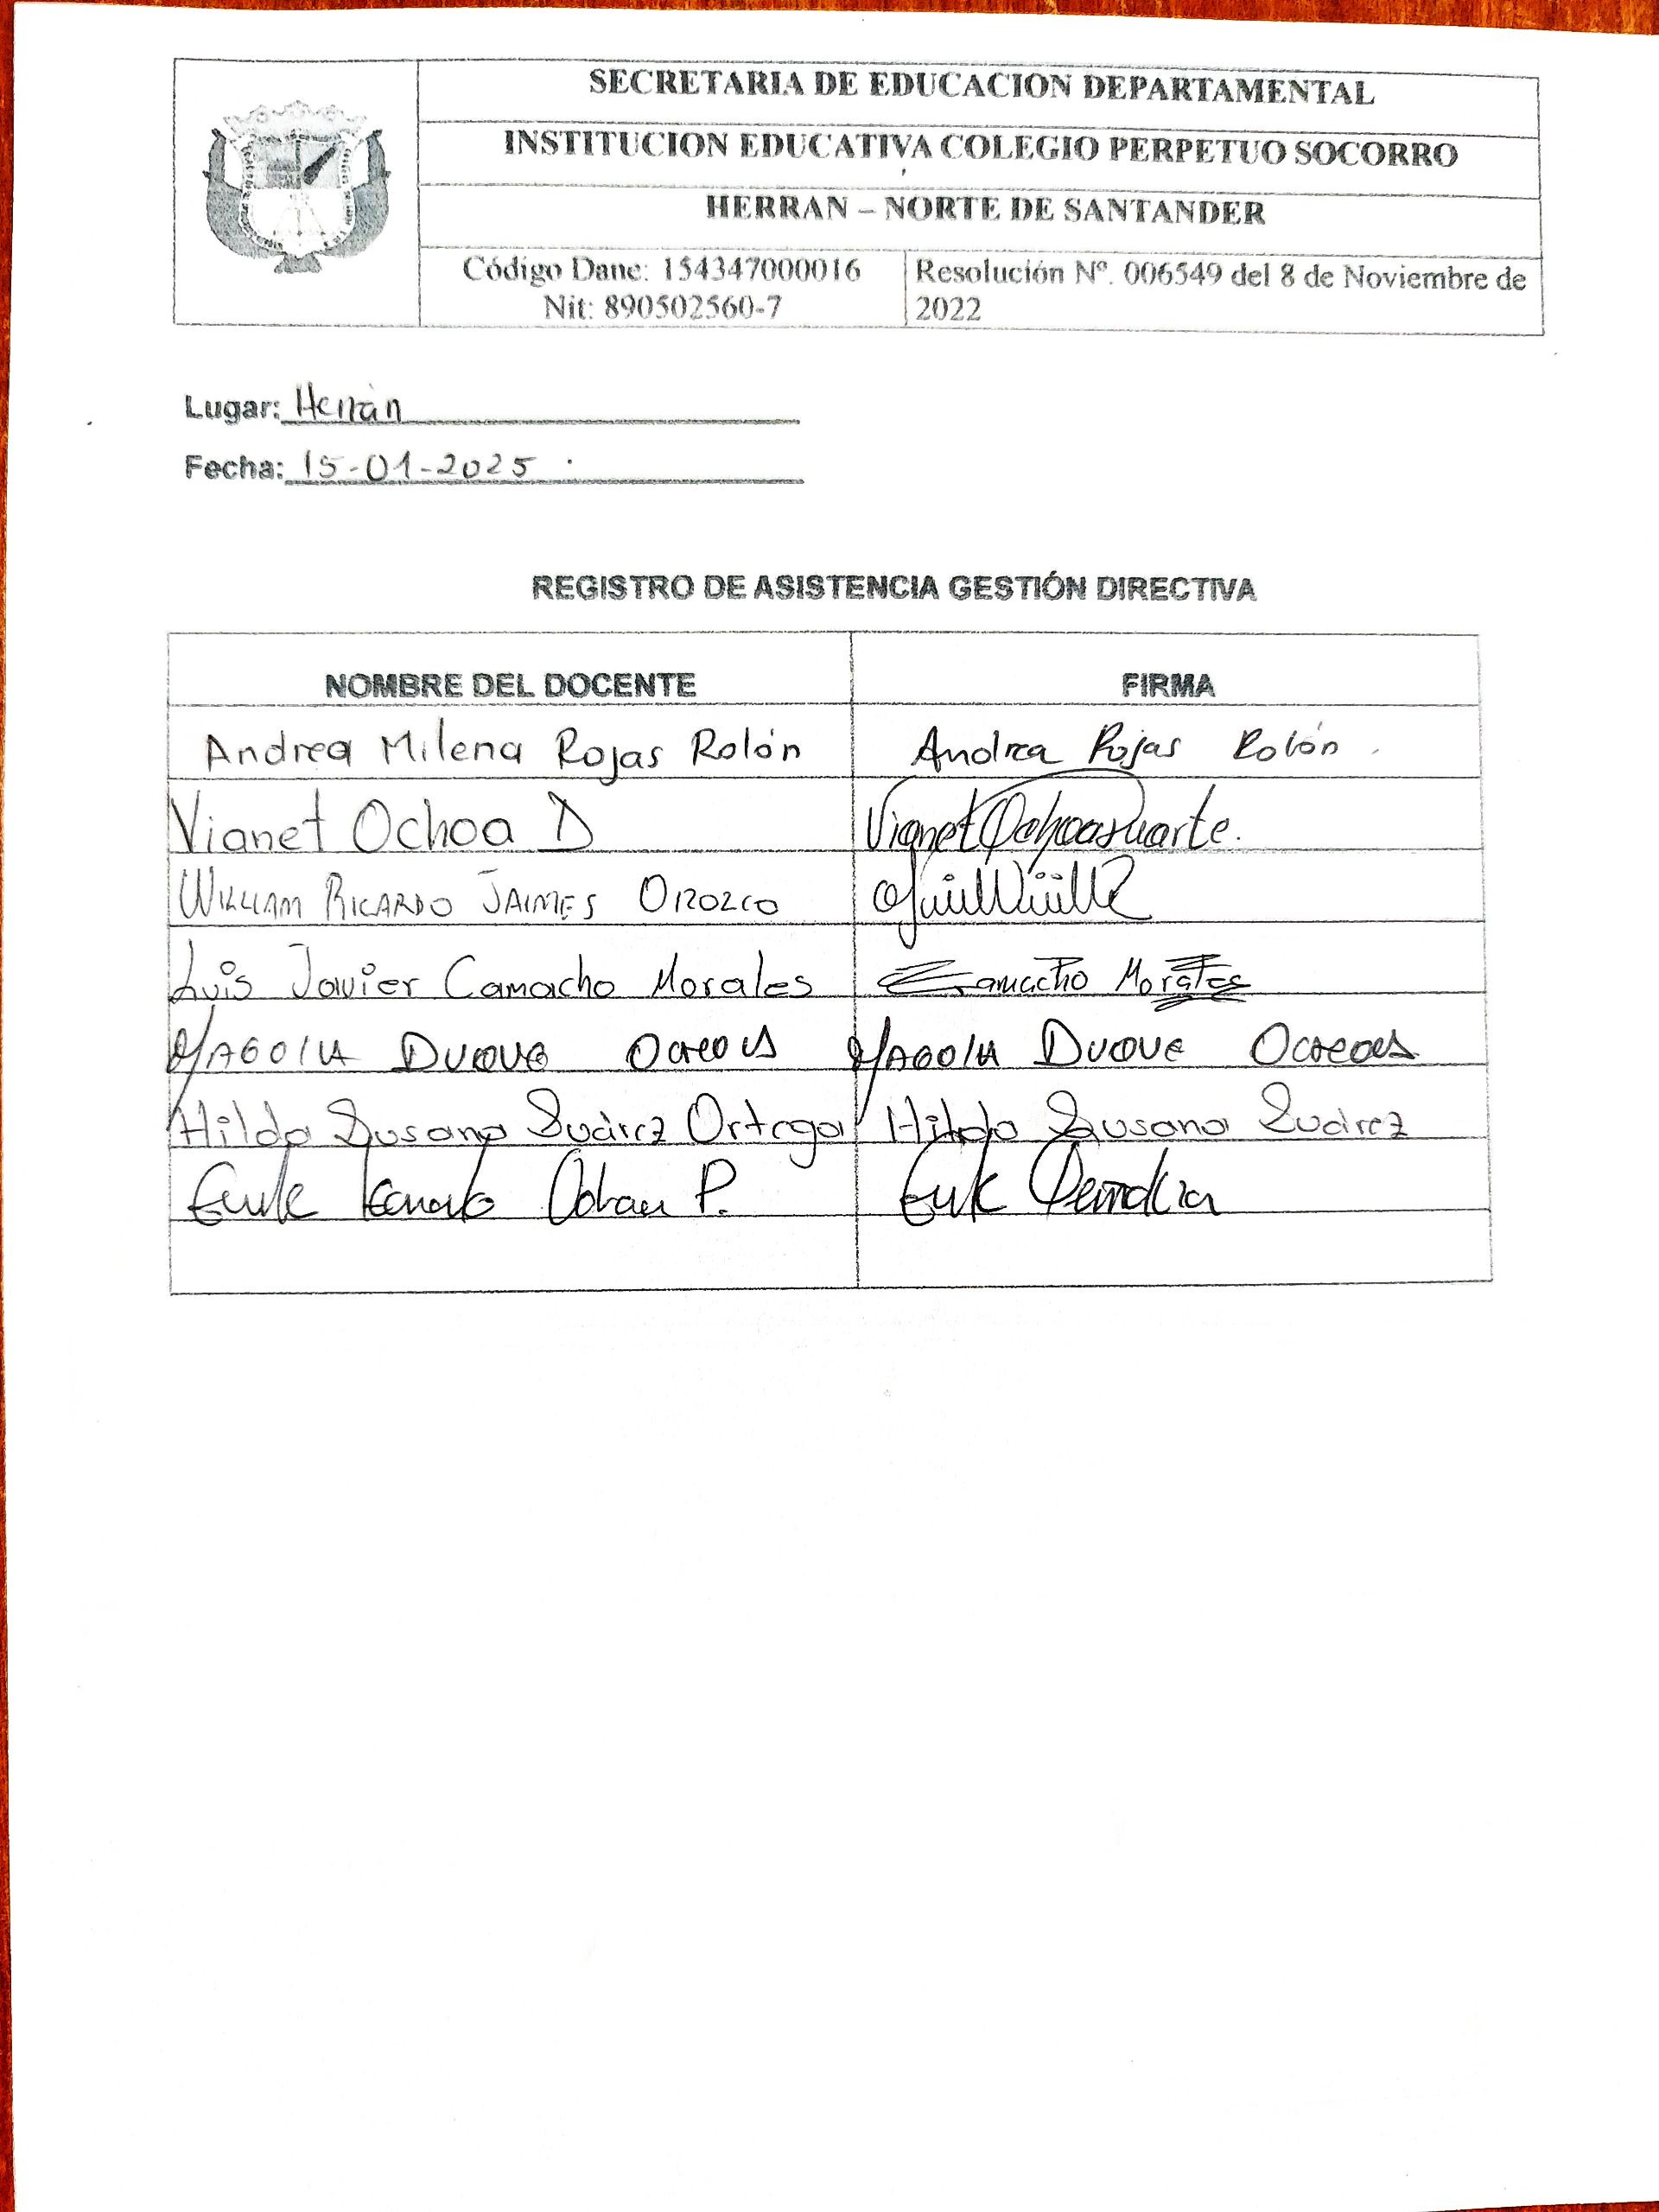 SECRETARIA DE EDUCACION DEPARTAMENTAL
INSTITUCION EDUCATIVA COLEGIO PERPETUO SOCORRO
HERRAN – NORTE DE SANTANDER
Código Dane: 154347000016
Nit: 890502560-7
Resolución Nº. 006549 del 8 de Noviembre de
2022
Lugar: Herrán
Fecha: 15-01-2025
REGISTRO DE ASISTENCIA GESTIÓN DIRECTIVA
NOMBRE DEL DOCENTE FIRMA
Andrea Milena Rojas Rolón Andrea Rojas Rolón
Vianet Ochoa D Vianet Ochoa Duarte.
WILLIAM RICARDO JAIMES OROZCO
Luis Javier Camacho Morales Camacho Morales
DUQUE DUQUE
Hilda Susana Suárez Ortega Hilda Susana Suárez
P.